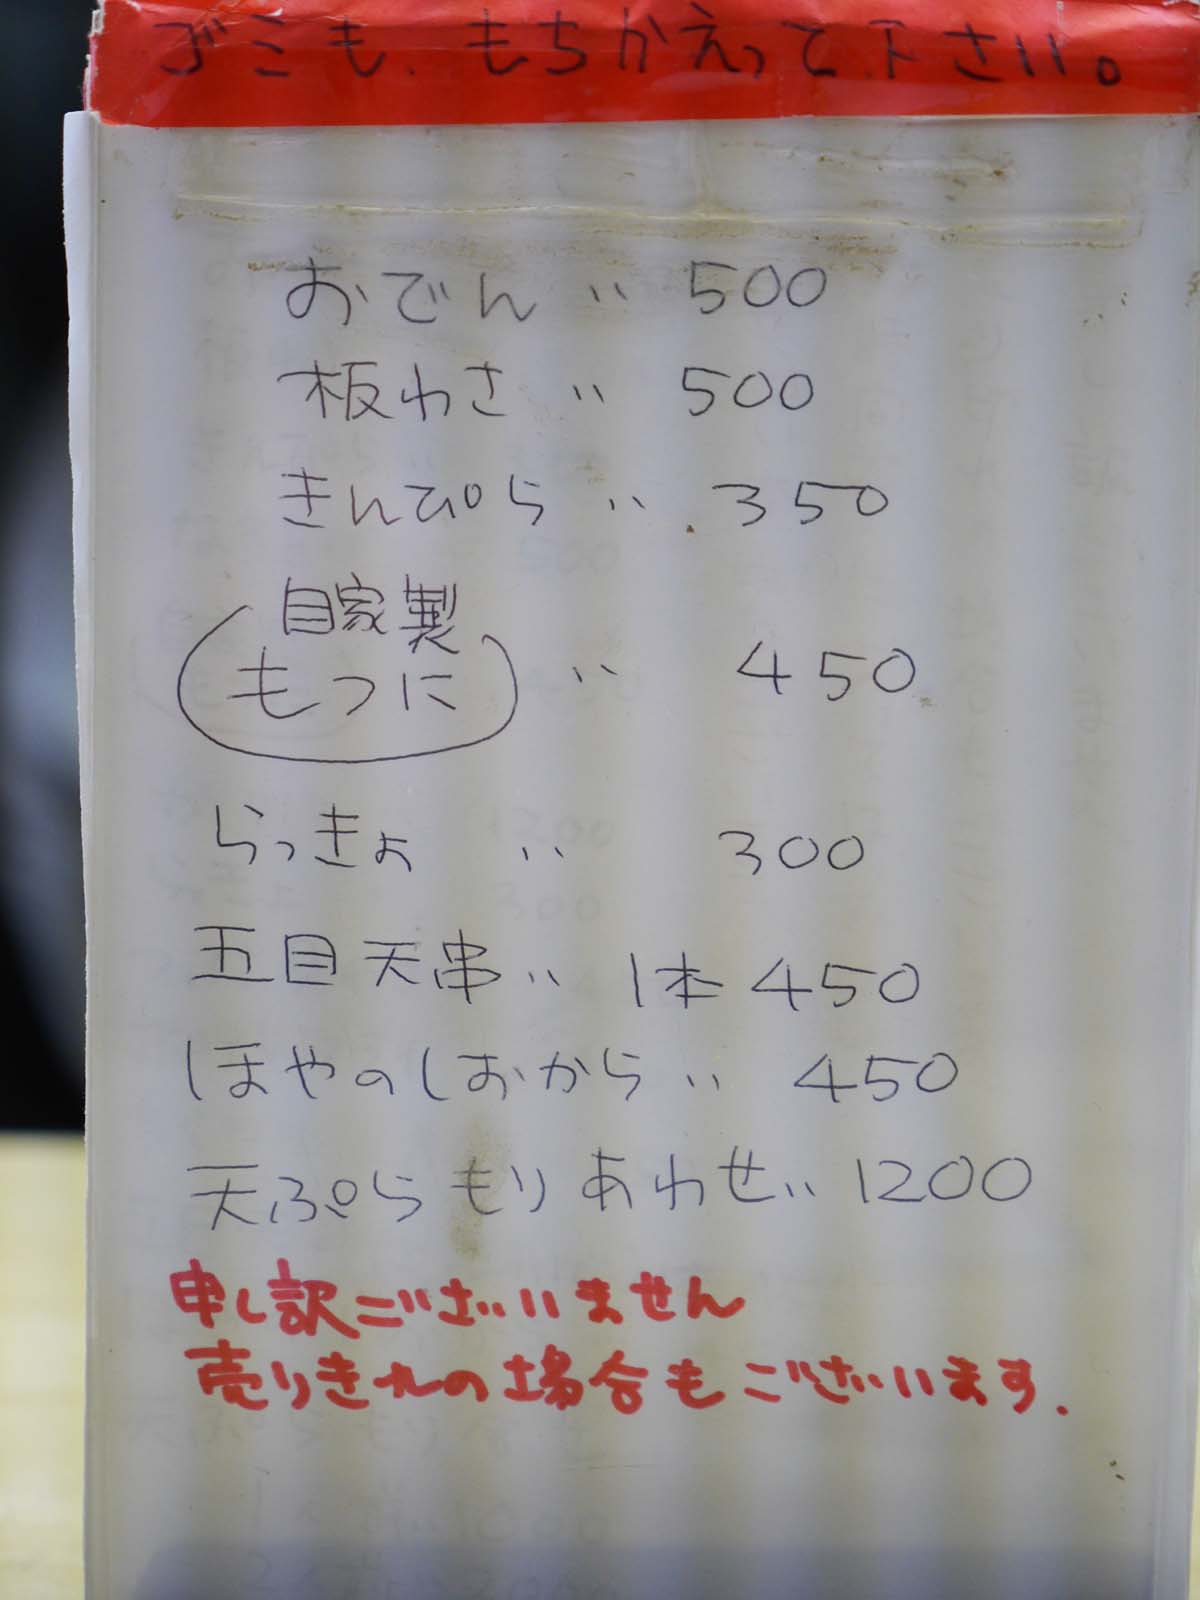 ゴミも、もちかえって下さい。
おでん 〃 500
板わさ 〃 500
きんぴら 〃 350
自家製
もつに 〃 450
らっきょ 〃 300
五目天串〃 1本 450
ほやのしおから 〃 450
天ぷらもりあわせ〃 1200
申し訳ございません
売りきれの場合もございます.